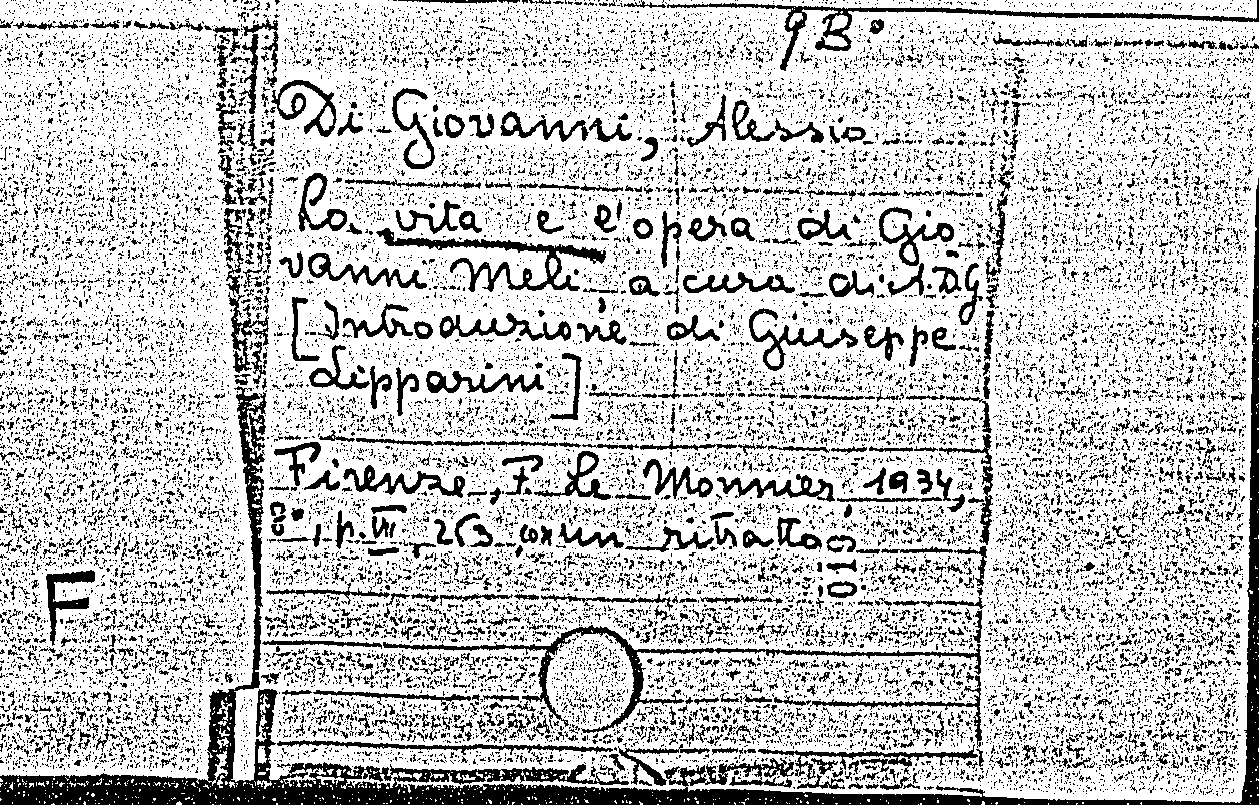 9B°
Di Giovanni, Alessio
La vita e l'opera di Gio
vanni Meli, a cura di A.D.G
[Introduzione di Giuseppe
Lipparini].
Firenze, F. Le Monnier, 1934,
8°, p. VII, 263, con un ritratto
F